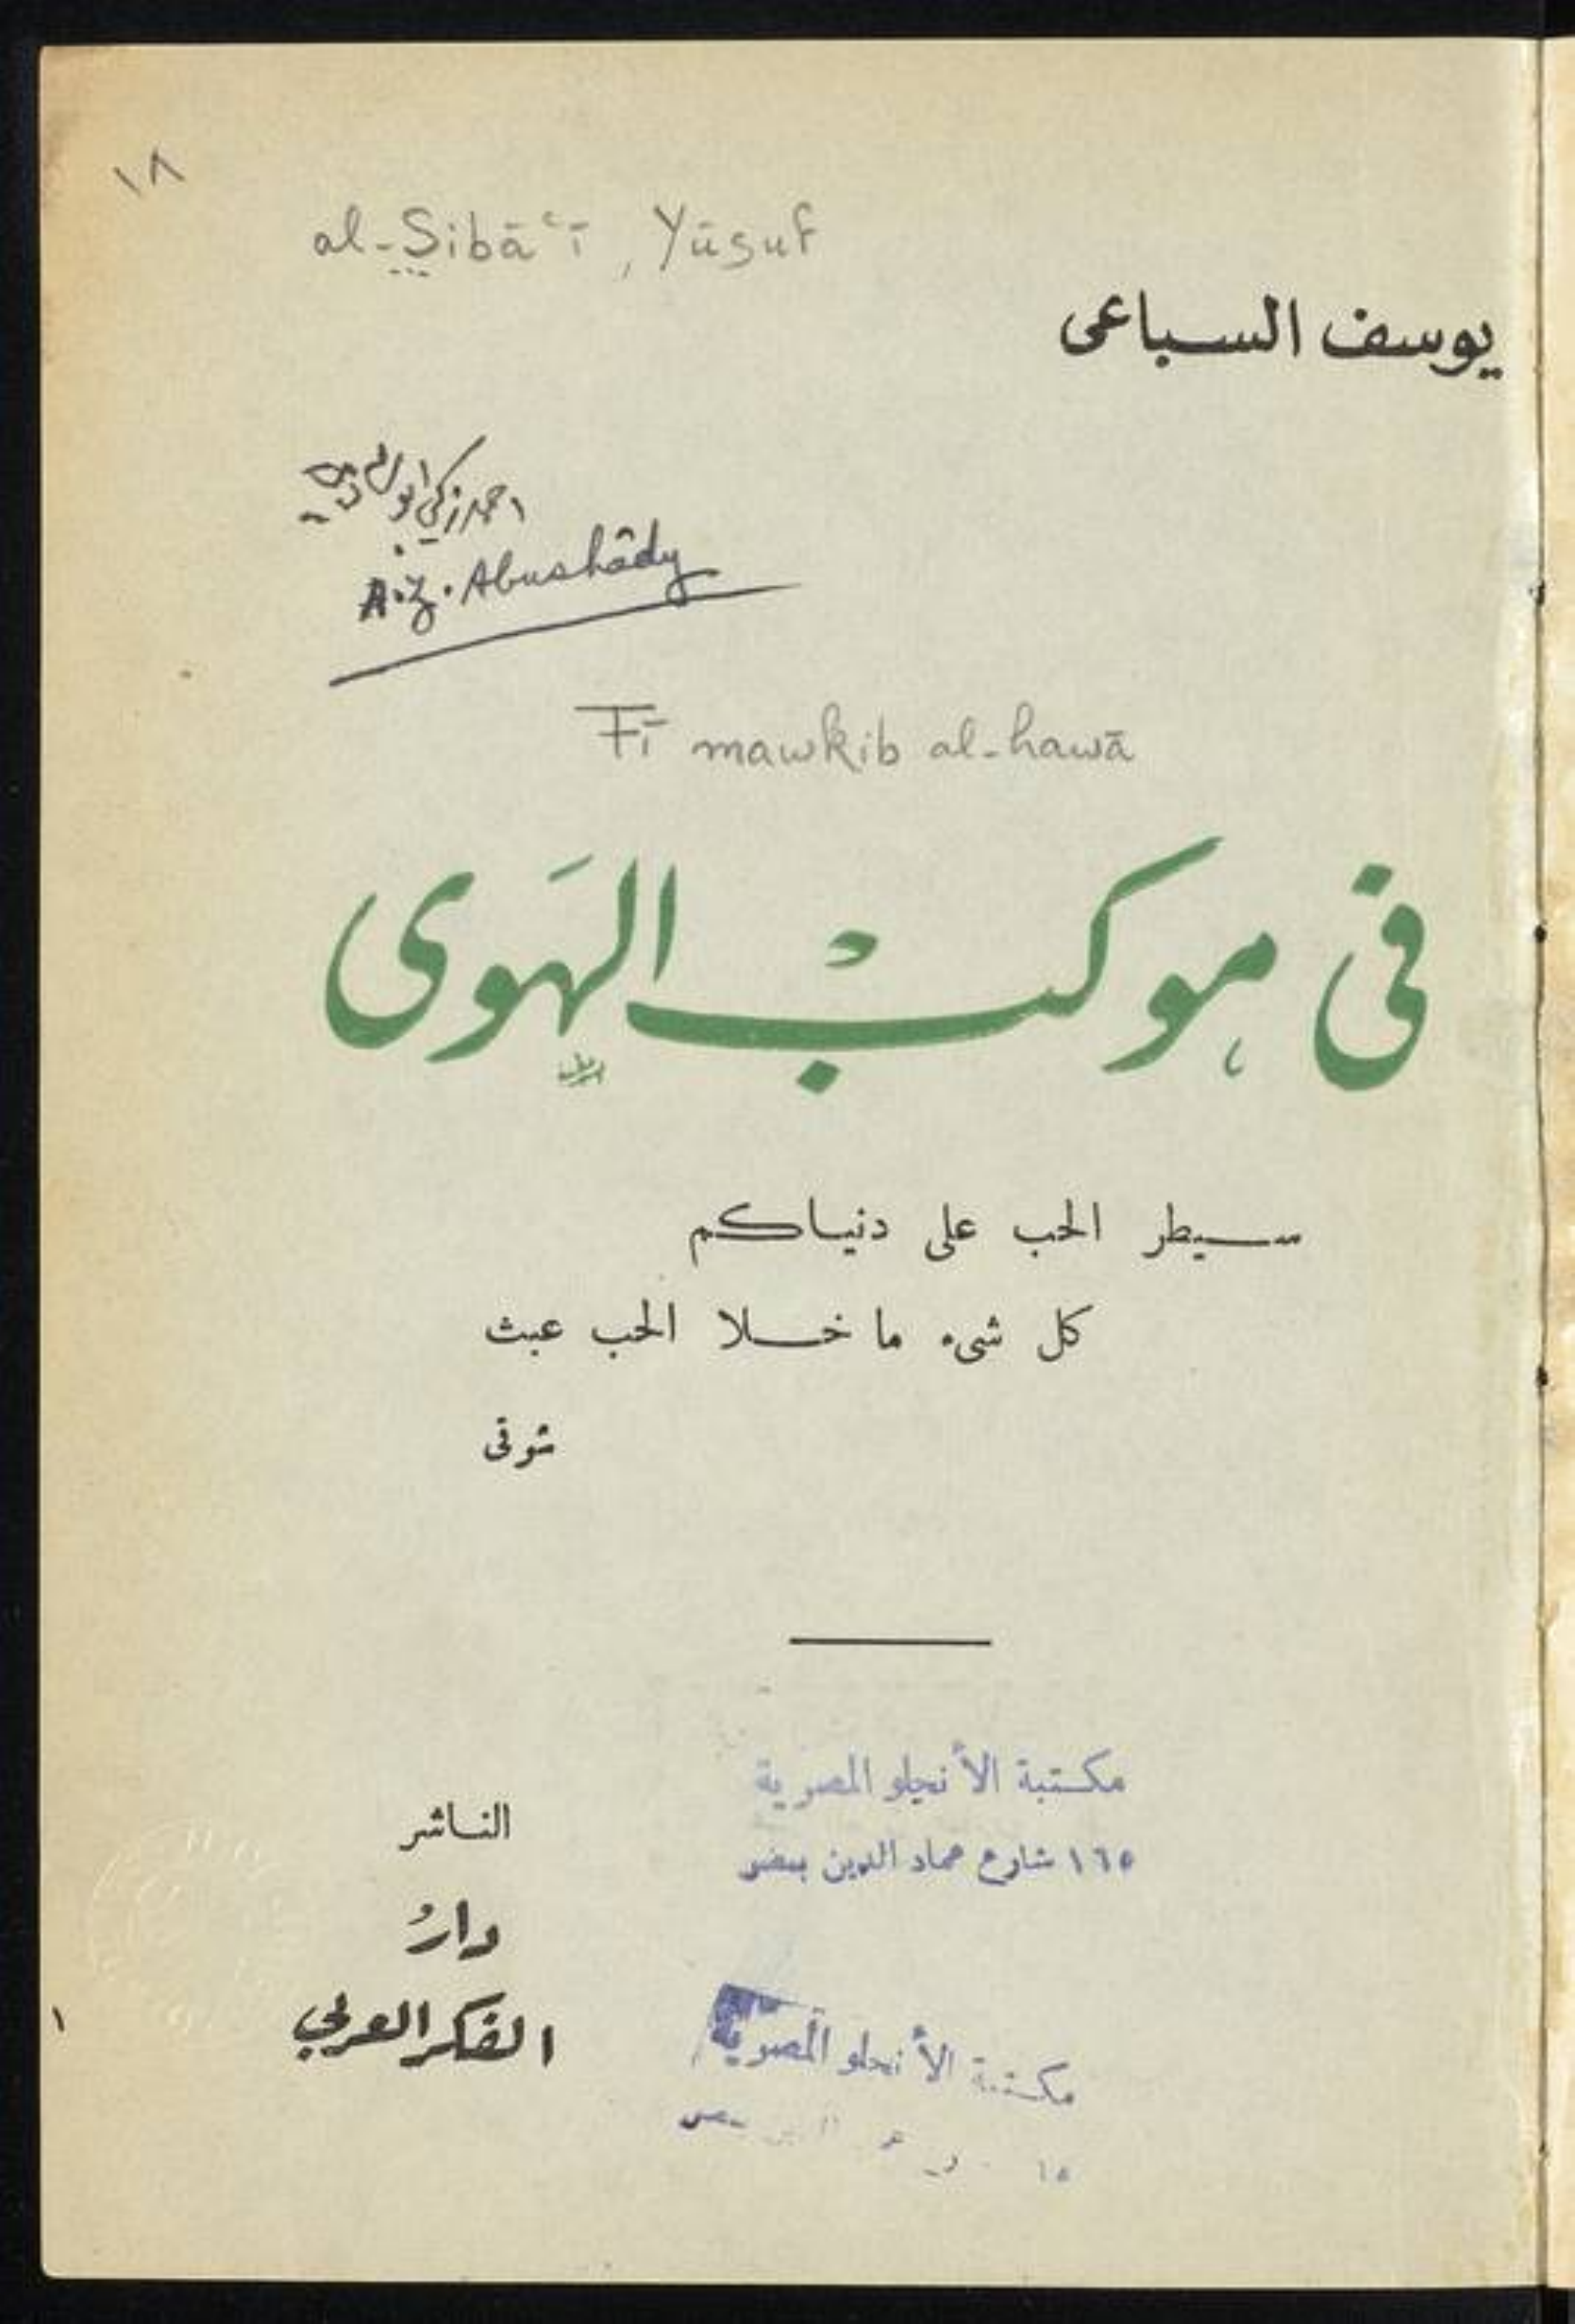 ١٨
al-Sibāʿī, Yūsuf
يوسف السباعى
احمد زكي ابو شادي
A.Z. Abushâdy
Fī mawkib al-hawā
فى موكبْ الهَوى
سيطر الحب على دنياكم
كل شىء ما خلا الحب عبث
شوقى
مكتبة الأنجلو المصرية
١٦٥ شارع عماد الدين بمصر
الناشر
دارُ
الفكر العربي
١
مكتبة الأنجلو المصرية